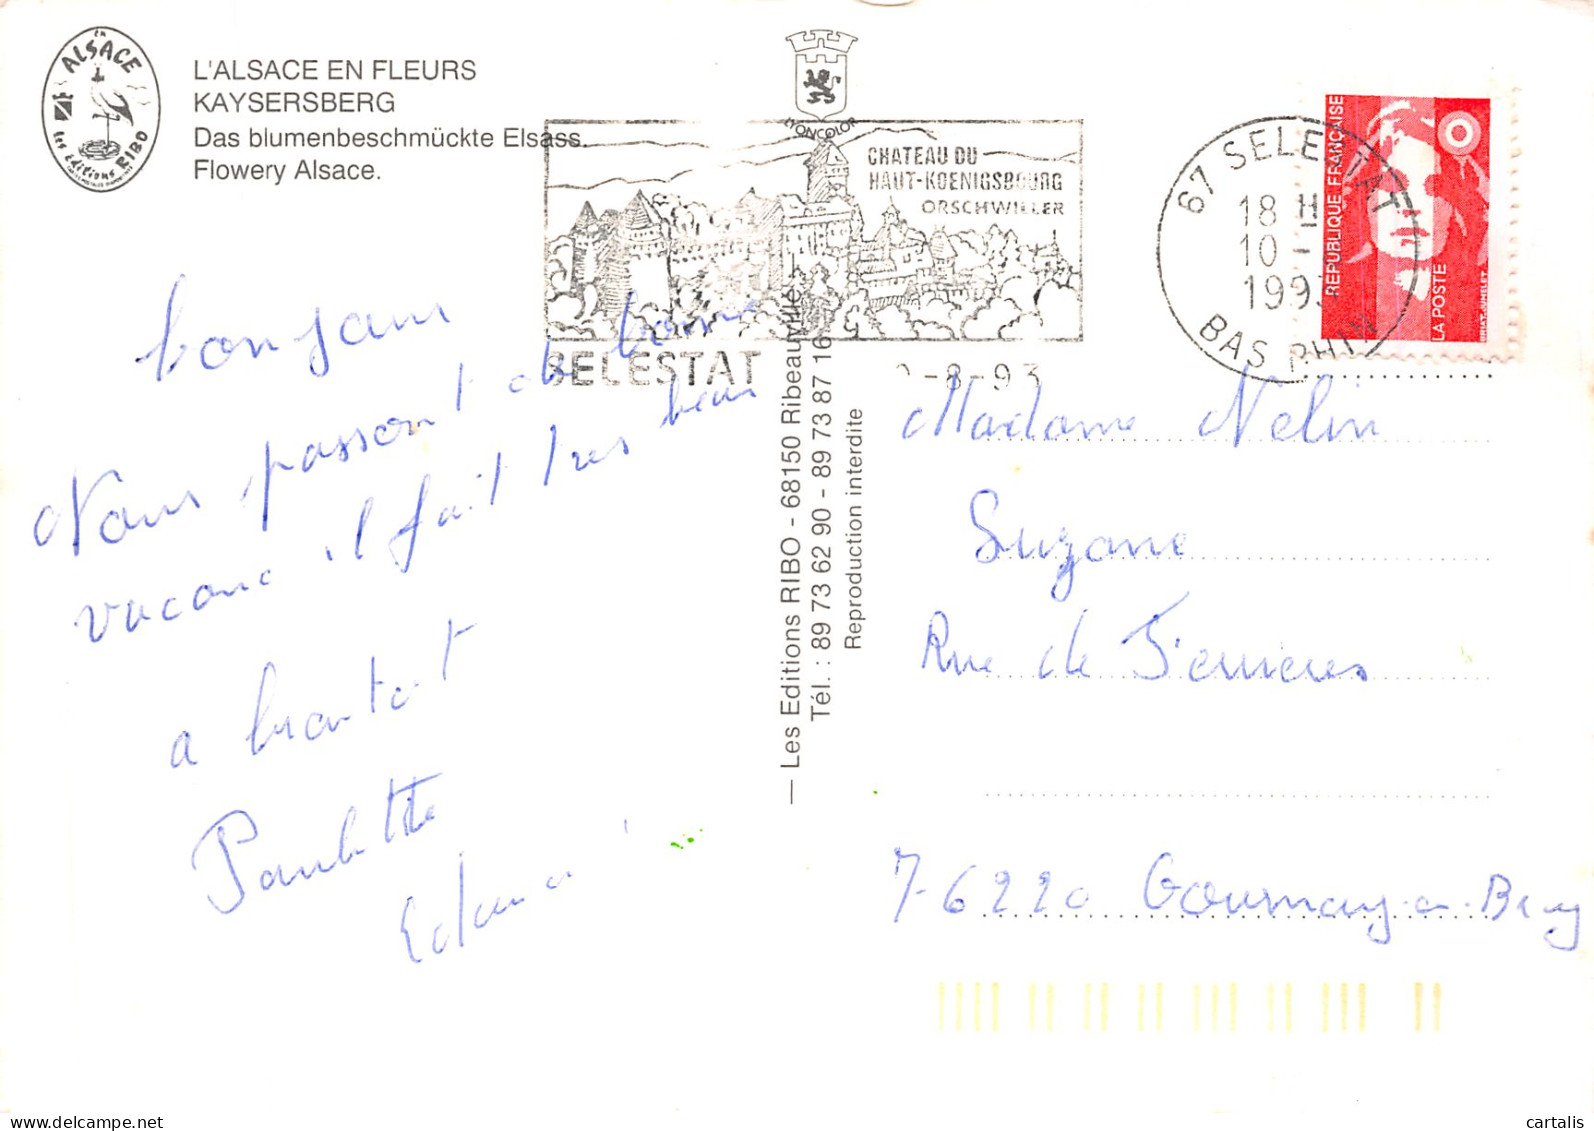 en
ALSACE
les éditions RIBO
L'ALSACE EN FLEURS
KAYSERSBERG
Das blumenbeschmückte Elsass.
Flowery Alsace.
LYONCOLOR
CHATEAU DU
HAUT-KOENIGSBOURG
ORSCHWILLER
SELESTAT
-8-93
67 SELESTAT
18 H
10 -
199
BAS RHIN
REPUBLIQUE FRANÇAISE
LA POSTE
BRIAT-JUMELET
bonjour
Nous passont de bonne
vacanc il fait tres beau
a bientot
Paulette
— Les Editions RIBO - 68150 Ribeauvillé
Tél. : 89 73 62 90 - 89 73 87 16
Reproduction interdite
Madame Nelin
Suzane
Rue de Ferrieres
76220 Gournay-en-Bray
cartalis
www.delcampe.net